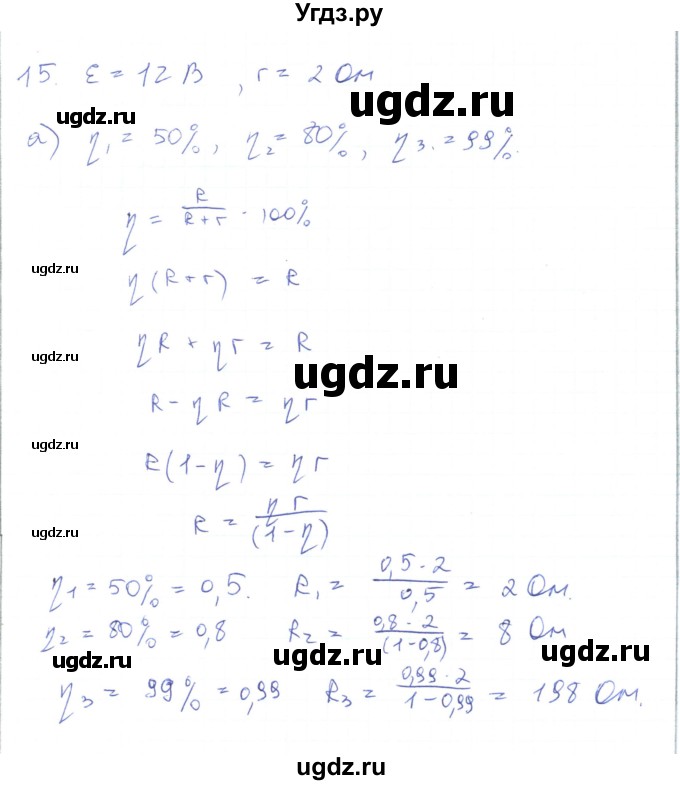 Угдз.ру
15. ε = 12 В , r = 2 Ом
ugdz.ru ugdz.ru
а) η₁ = 50%, η₂ = 80%, η₃. = 99%.
η = R/(R+r) · 100%
ugdz.ru ugdz.ru
η(R+r) = R
ηR + ηr = R
ugdz.ru ugdz.ru
R - ηR = ηr
ugdz.ru
R(1-η) = ηr
R = ηr/(1-η)
ugdz.ru ugdz.ru
η1 = 50% = 0,5. R₁ = (0,5·2)/0,5 = 2 Ом.
η₂ = 80% = 0,8 R₂ = (0,8·2)/(1-0,8) = 8 Ом
ugdz.ru ugdz.ru
η₃ = 99% = 0,99 R₃ = (0,99·2)/(1-0,99) = 198 Ом.
ugdz.ru